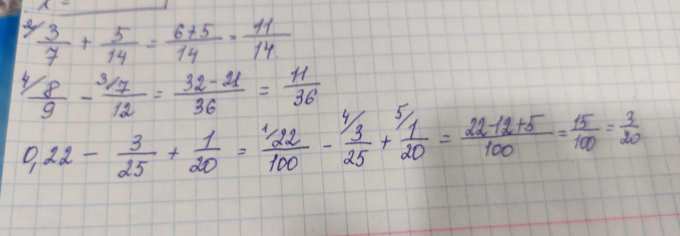 2/3/7 + 5/14 = 6+5/14 = 11/14
4/8/9 - 3/7/12 = 32-21/36 = 11/36
0,22 - 3/25 + 1/20 = 1/22/100 - 4/3/25 + 5/1/20 = 22-12+5/100 = 15/100 = 3/20